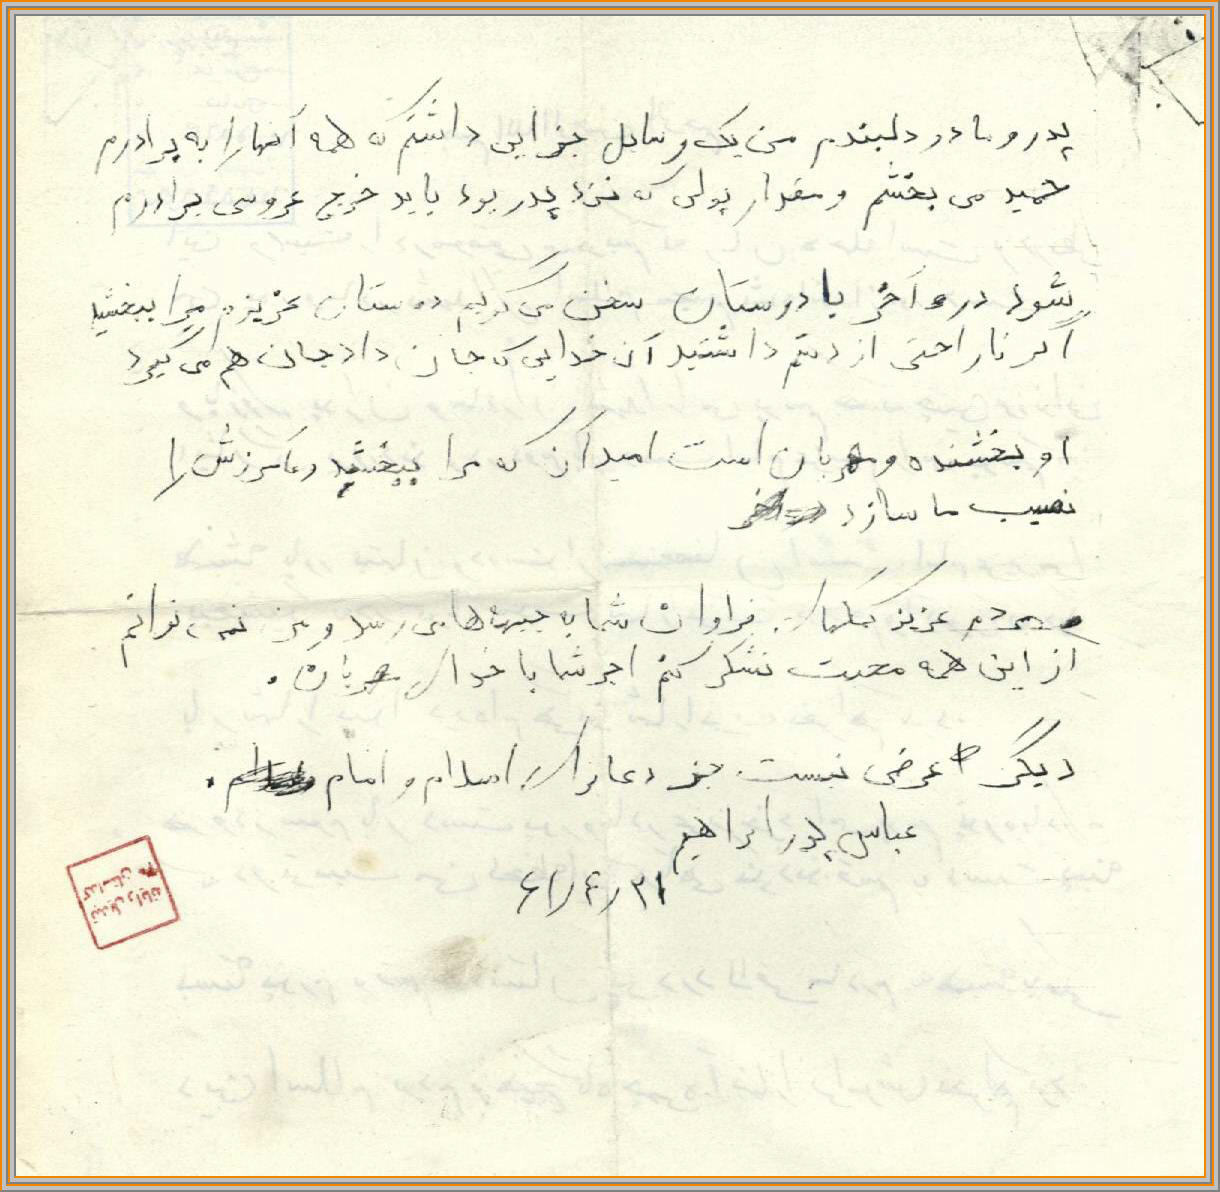 پدر و مادر دلبندم من یک وسایل جزایی داشتم که همه آنها را به برادرم
حمید می بخشم و مقدار پولی که نزد پدر بود باید خرج عروسی برادرم
شود در آخر با دوستان سخن می گویم دوستان عزیزم مرا ببخشید
اگر ناراحتی از دستم داشتید آن خدایی که جان داد جان هم می گیرد
او بخشنده و مهربان است امید آن که مرا ببخشید و آمرزش را
نصیب ما سازد
مردم عزیز کمکهای فراوان شما به جبهه ها می رسد و من نمی توانم
از این همه محبت تشکر کنم اجر شما با خدای مهربان .
دیگر عرضی نیست جز دعا برای اسلام و امام .
عباس پور ابراهیم
۶۱/۴/۳۱
تبدیل رایانه
گلستان